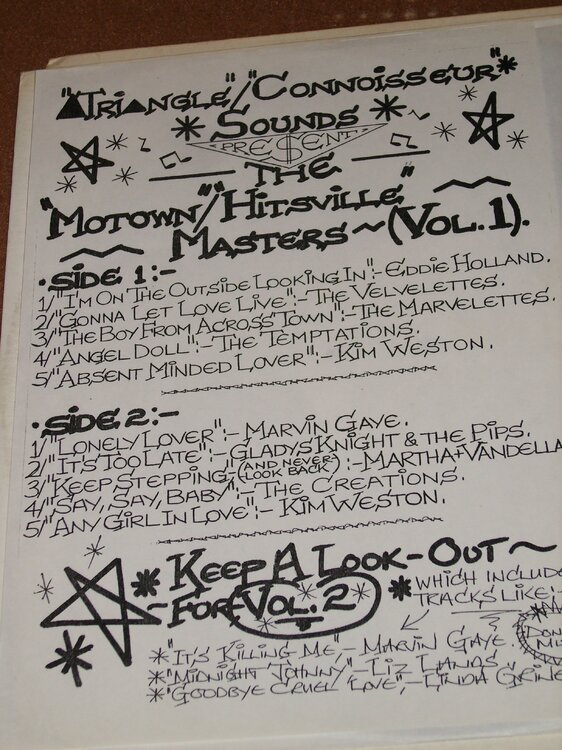 "TRIANGLE"/"CONNOISSEUR"*
* SOUNDS *
PRE$ENT
THE
"MOTOWN"/"HITSVILLE"
MASTERS ~ (VOL. 1).
·SIDE 1:-
1/"I'M ON THE OUTSIDE LOOKING IN":- EDDIE HOLLAND.
2/"GONNA LET LOVE LIVE":- THE VELVELETTES.
3/"THE BOY FROM ACROSS TOWN":- THE MARVELETTES.
4/"ANGEL DOLL":- THE TEMPTATIONS.
5/"ABSENT MINDED LOVER":- KIM WESTON.
·SIDE 2:-
1/"LONELY LOVER":- MARVIN GAYE.
2/"IT'S TOO LATE":- GLADYS KNIGHT & THE PIPS.
3/"KEEP STEPPING" (AND NEVER LOOK BACK) :- MARTHA + VANDELLA
4/"SAY, SAY, BABY":- THE CREATIONS.
5/"ANY GIRL IN LOVE":- KIM WESTON.
* KEEP A LOOK-OUT ~
~ FOR VOL. 2
* WHICH INCLUDE
TRACKS LIKE:-
* "IT'S KILLING ME" - MARVIN GAYE.
* "MIDNIGHT JOHNNY" - LIZ LANDS.
* "GOODBYE CRUEL LOVE", - LINDA GRINE
DON